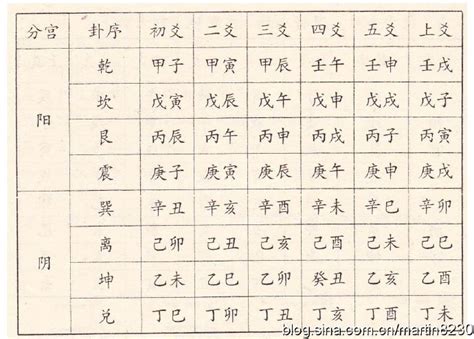 分宫 卦序 初爻 二爻 三爻 四爻 五爻 上爻
阳 乾 甲子 甲寅 甲辰 壬午 壬申 壬戌
坎 戊寅 戊辰 戊午 戊申 戊戌 戊子
艮 丙辰 丙午 丙申 丙戌 丙子 丙寅
震 庚子 庚寅 庚辰 庚午 庚申 庚戌
阴 巽 辛丑 辛亥 辛酉 辛未 辛巳 辛卯
离 己卯 己丑 己亥 己酉 己未 己巳
坤 乙未 乙巳 乙卯 癸丑 乙亥 乙酉
兑 丁巳 丁卯 丁丑 丁亥 丁酉 丁未
blog.sina.com.cn/martin8230